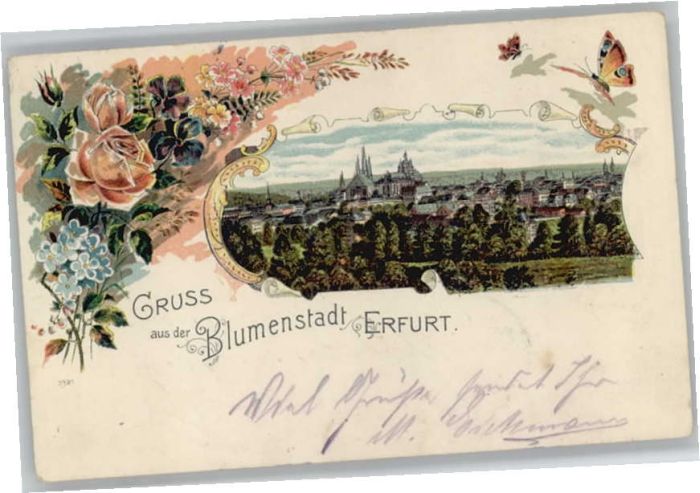 GRUSS
aus der Blumenstadt ERFURT.
Viel Grüße sendet Ihr
M.